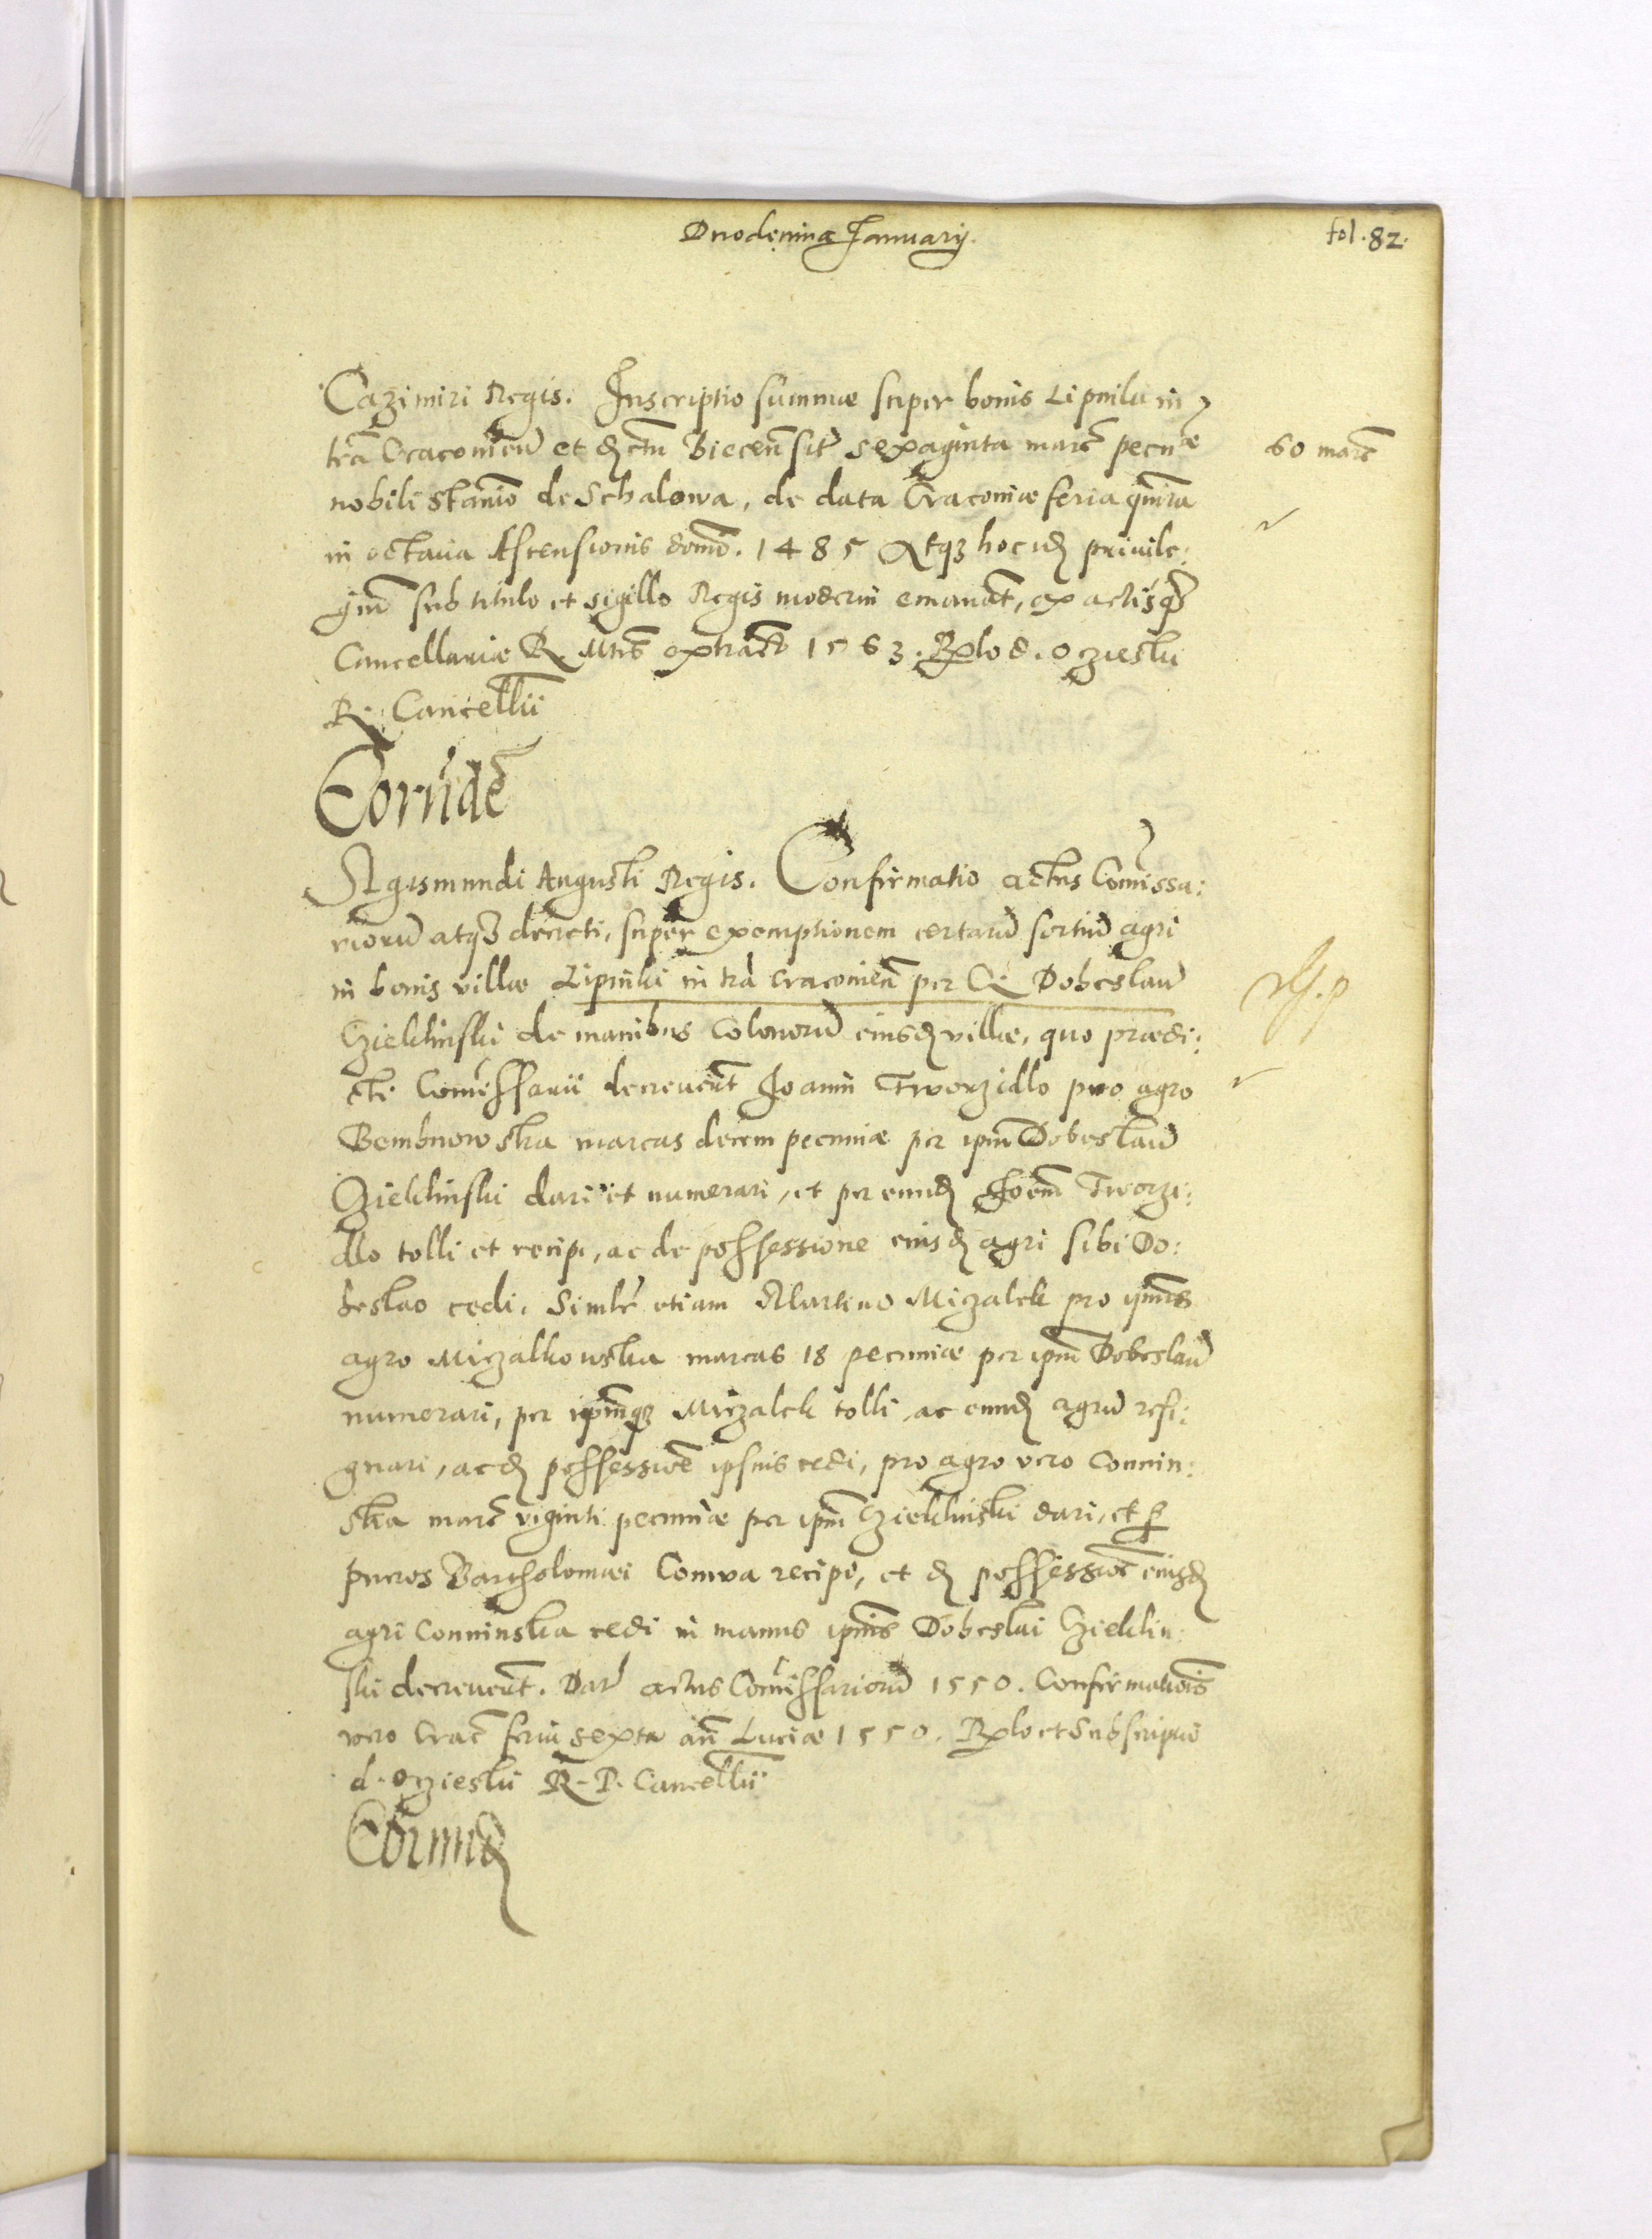 Duodenina Januarij.
fol. 82.
Cazimiri Regis. Inscriptio summæ super bonis Lipniki in
tra Craconien et distctu Biecen sit sexaginta marc pecuæ
60 marc
nobili Stanio de Schalowa, de data Cracoviæ feria quinta
in octava Ascensionis domi. 1485 Atq3 hoc id privile:
gium sub titulo et sigillo Regis moderni emanat, ex actisq3
Cancellariæ R. Mtis extract 1563. Rlo d. Oczieski
R. Cancellii
Eorunde
Sigismundi Augusti Regis. Confirmatio actus Comissa:
riorum atq3 decreti, super exemptionem certarum sortium agri
in bonis villæ Lipinki in tra Craconien per G Dobeslaum
Czieklinski de manibus Colonorum eiusd villæ, quo prædi:
cti Comissarii decreverut Joanni Tworzidlo pro agro
Bembnowska marcas decem pecuniæ per ipm Dobeslaum
Czieklinski dari et numerari, et per eund Joem Tworzi:
dlo tolli et recipi, ac de possessione eiusd agri sibi Do:
beslao cedi. Similr etiam Martino Miczalek pro ipius
agro Miczalkowska marcas 18 pecuniæ per ipm Dobeslaum
numerari, per ipmq3 Miczalek tolli ac eund agrum resi:
gnari, ac d possessioe ipsius cedi, pro agro vero Connin:
ska marc viginti pecuniæ per ipm Czieklinski dari, et p
pueros Bartholomæi Comva recipi, et d possessioe eiusd
agri Conninska cedi in manus ipius Dobeslai Czieklin:
ski decreverut. Dat actus Comissariorum 1550. Confirmatiois
vero Crac feria sexta an Luciæ 1550. Rlo et Subscriptio
d. Oczieski R. P. Cancellii
Eorund